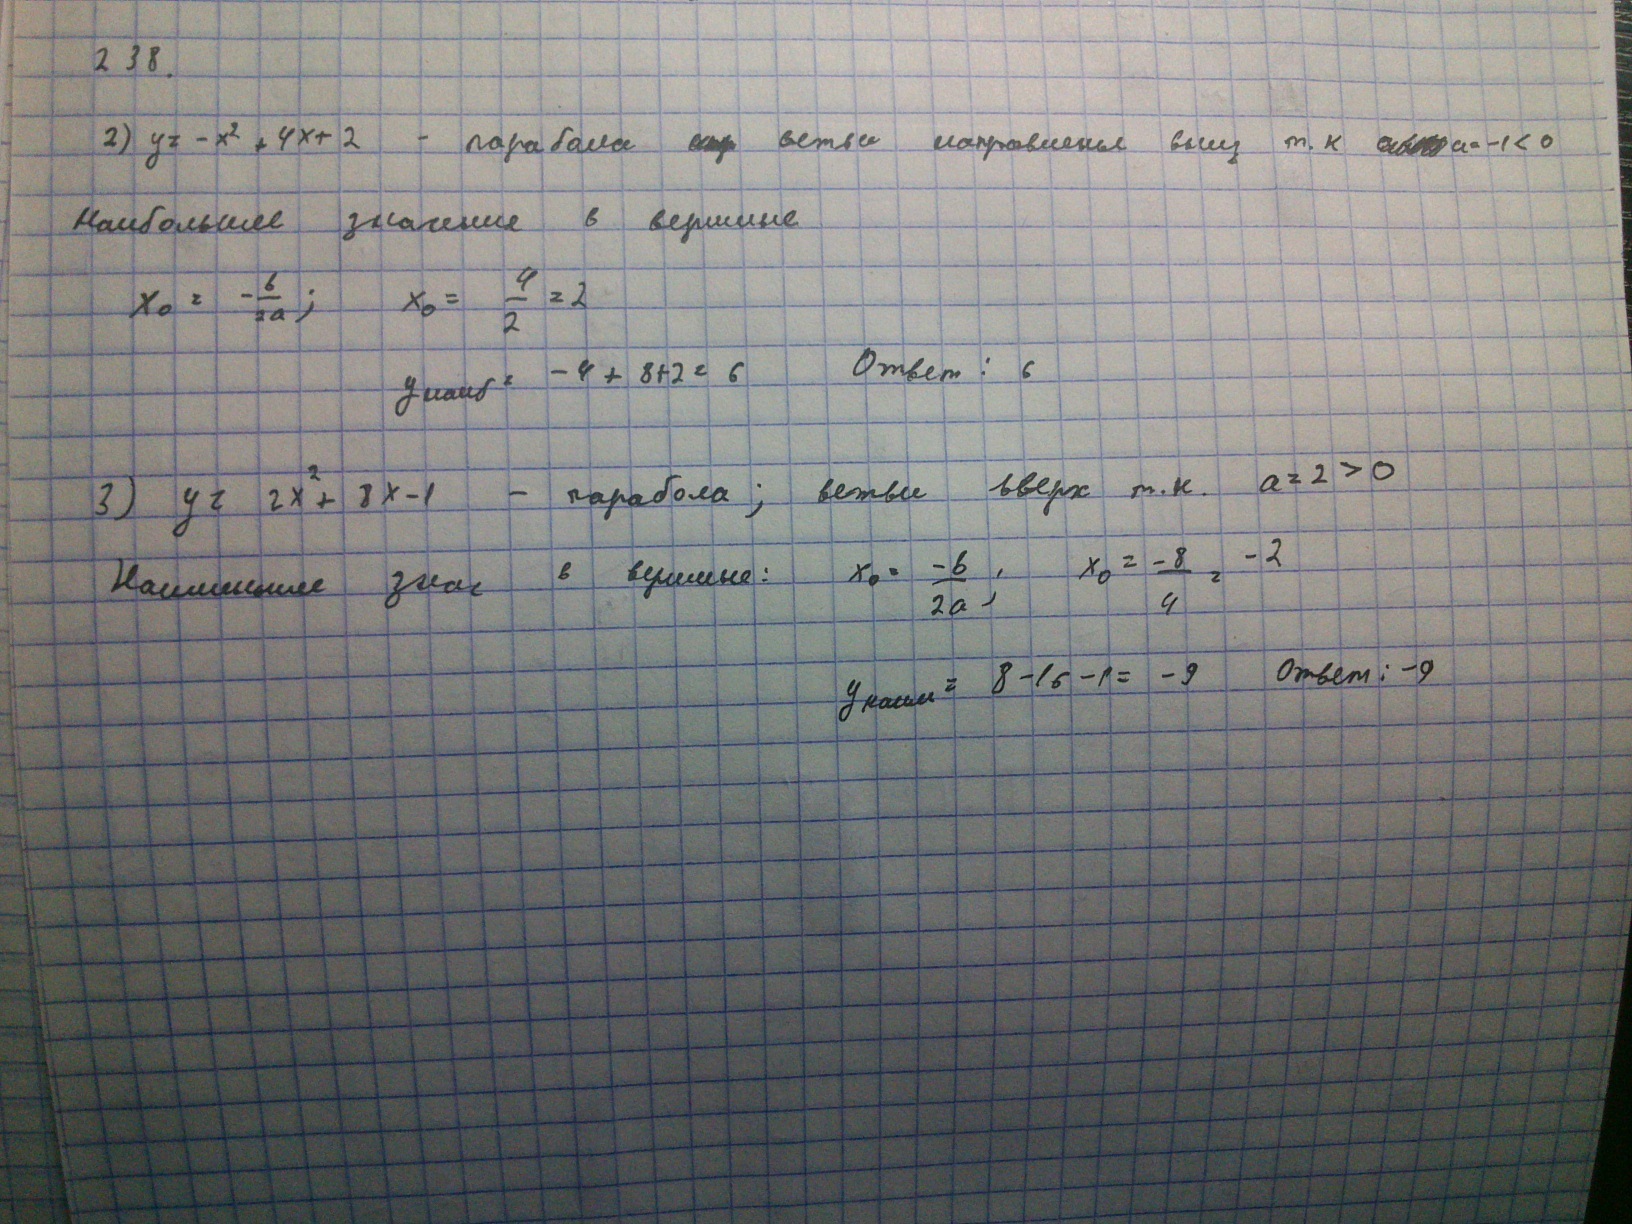 238.
2) y = -x² + 4x + 2 - парабола ветви направлены вниз т.к a = -1 < 0
Наибольшее значение в вершине
x₀ = -b/2a ; x₀ = 4/2 = 2
yнаиб = -4 + 8+2 = 6 Ответ: 6
3) y = 2x² + 8x - 1 - парабола; ветви вверх т.к. a = 2 > 0
Наименьшее знач в вершине: x₀ = -b/2a ; x₀ = -8/4 = -2
yнаим = 8 - 16 - 1 = -9 Ответ: -9